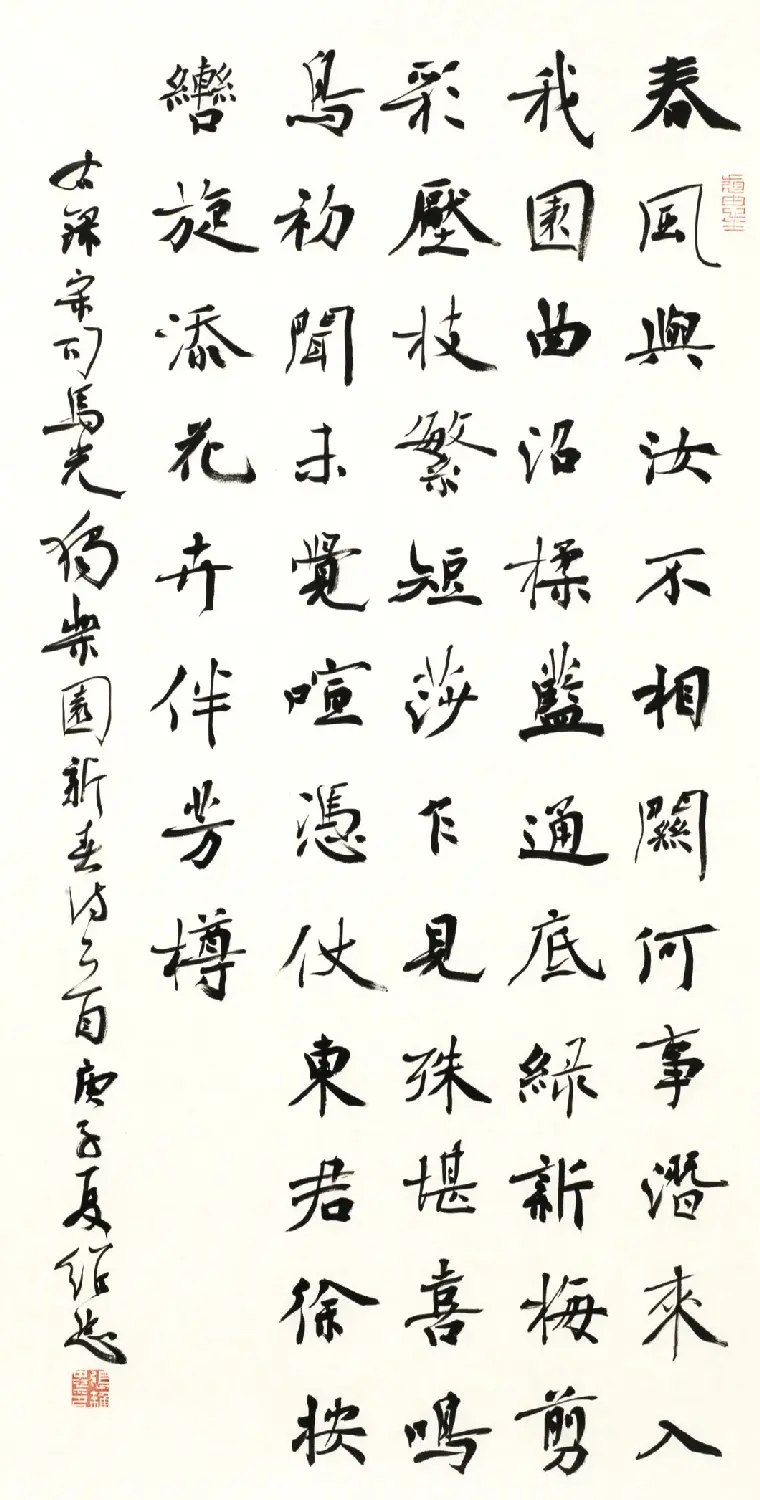 春風與汝不相關何事潛來入
我園曲沼柔藍通底綠新梅剪
彩壓枝繁短莎乍見殊堪喜鳴
鳥初聞未覺喧憑仗東君徐按
轡旋添花卉伴芳樽
右錄宋司馬光獨樂園新春詩一首庚子夏紹忠